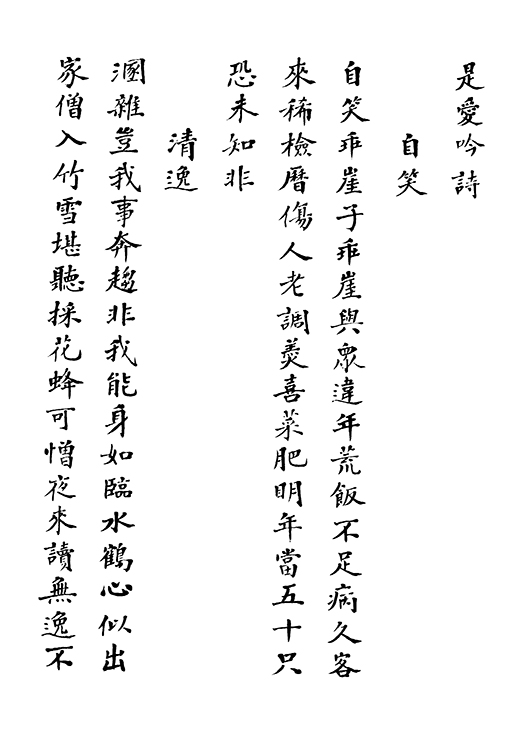 是愛吟詩
自笑
自笑乖崖子乖崖與衆違年荒飯不足病久客
來稀檢曆傷人老調羹喜菜肥明年當五十只
恐未知非
清逸
溷雜豈我事奔趨非我能身如臨水鶴心似出
家僧入竹雪堪聽採花蜂可憎夜來讀無逸不